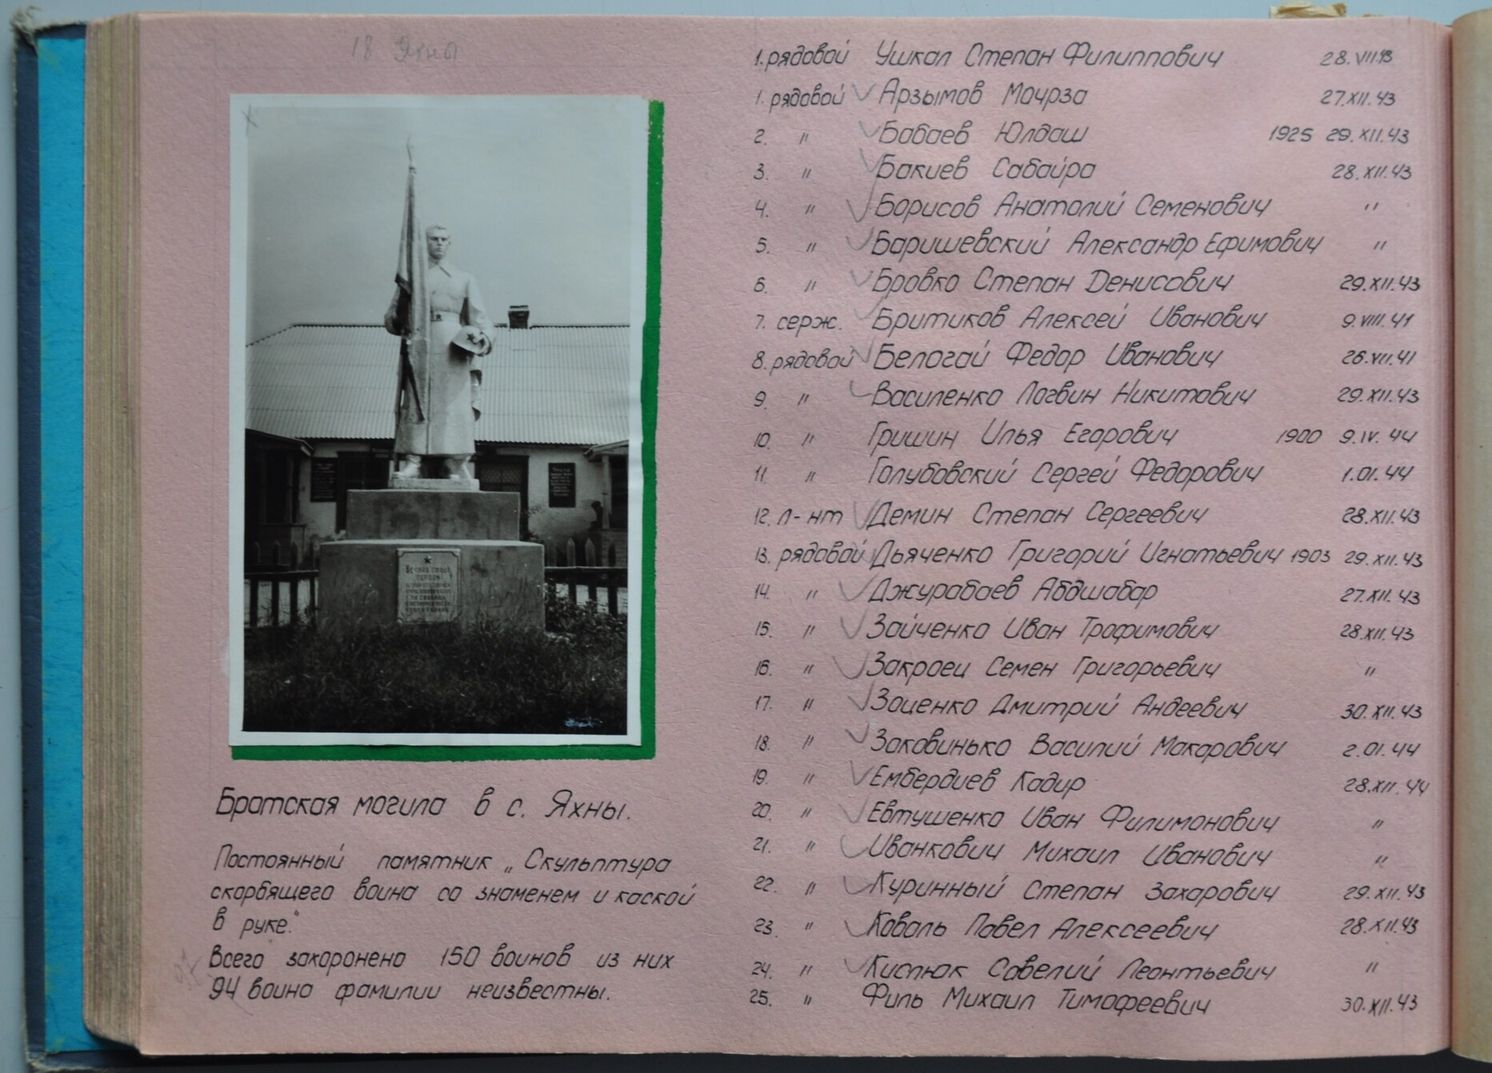 18 Яхны
Братская могила в с. Яхны.
Постоянный памятник „Скульптура
скорбящего воина со знаменем и каской
в руке."
Всего захоронено 150 воинов из них
94 воина фамилии неизвестны.
1. рядовой Ушкал Степан Филиппович 28.VII.43
1. рядовой Арзымов Моурза 27.XII.43
2. " Бабаев Юлдаш 1925 29.XII.43
3. " Бакиев Сабайра 28.XII.43
4. " Борисов Анатолий Семенович "
5. " Баришевский Александр Ефимович "
6. " Бровко Степан Денисович 29.XII.43
7. серж. Бритиков Алексей Иванович 9.VIII.41
8. рядовой Белогай Федор Иванович 26.VII.41
9. " Василенко Логвин Никитович 29.XII.43
10. " Гришин Илья Егорович 1900 9.IV.44
11. " Голубовский Сергей Федорович 1.01.44
12. л-нт Демин Степан Сергеевич 28.XII.43
13. рядовой Дьяченко Григорий Игнатьевич 1903 29.XII.43
14. " Джурабаев Абдшабар 27.XII.43
15. " Зайченко Иван Трофимович 28.XII.43
16. " Закраец Семен Григорьевич "
17. " Заценко Дмитрий Андеевич 30.XII.43
18. " Заковинько Василий Макарович 2.01.44
19. " Ембердиев Кадир 28.XII.44
20. " Евтушенко Иван Филимонович "
21. " Иванкович Михаил Иванович "
22. " Куринный Степан Захарович 29.XII.43
23. " Коваль Павел Алексеевич 28.XII.43
24. " Кислюк Савелий Леонтьевич "
25. " Филь Михаил Тимофеевич 30.XII.43